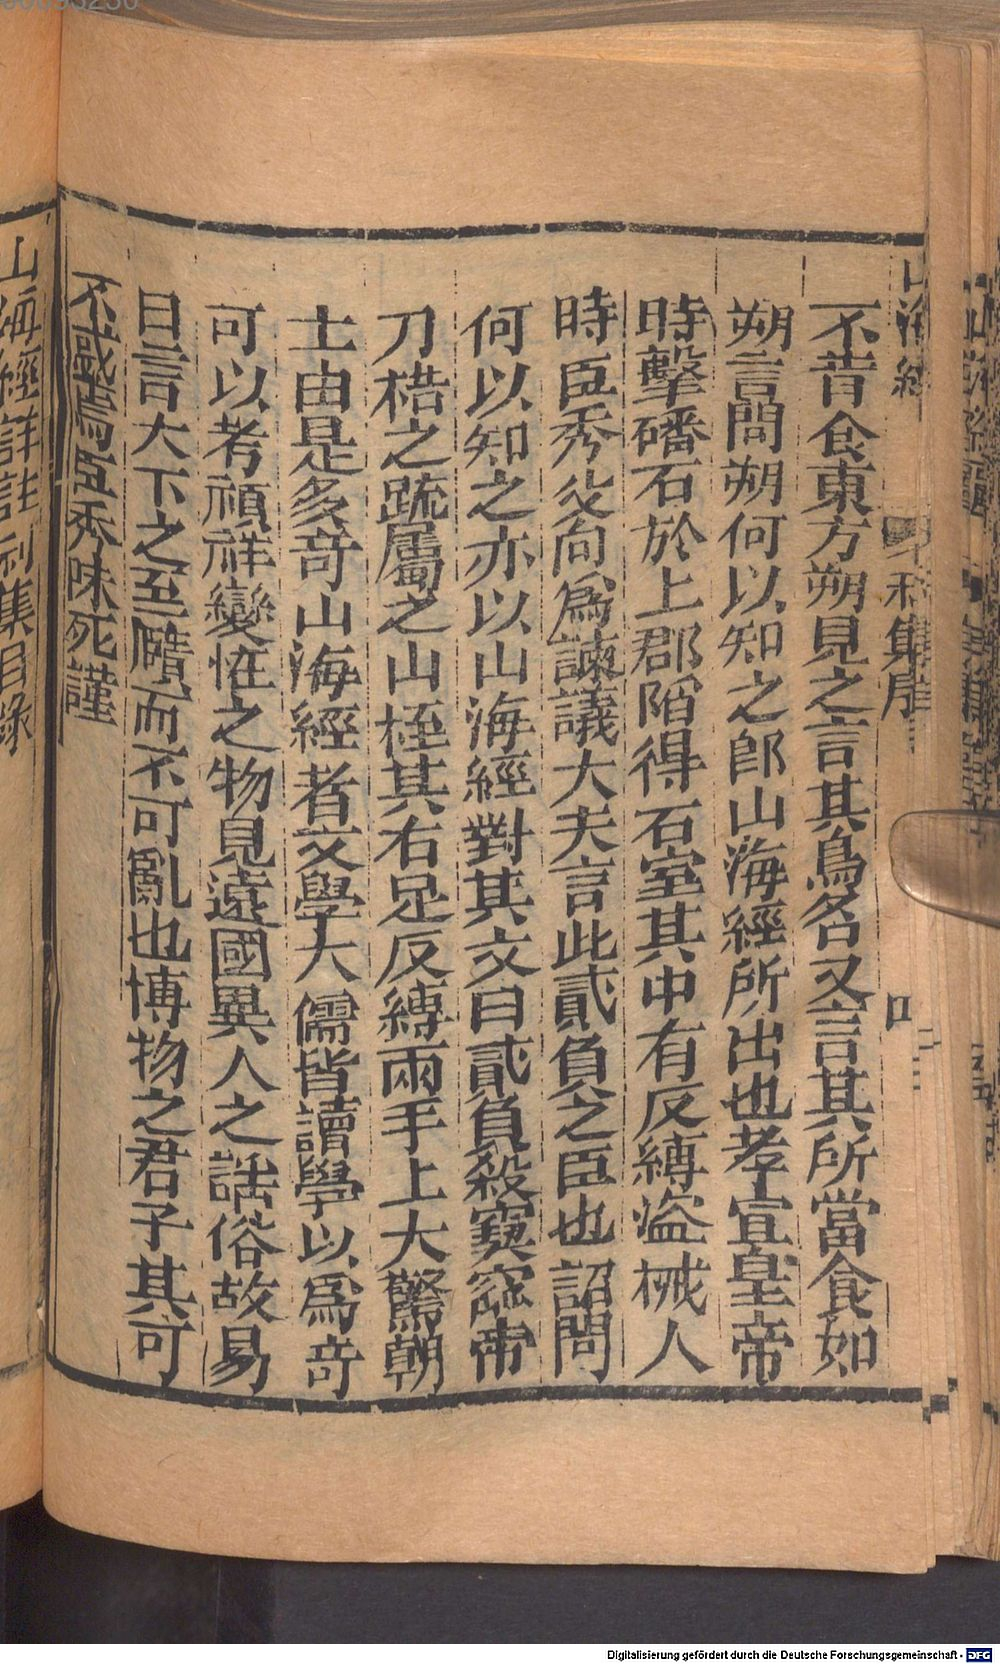 不肯食東方朔見之言其鳥名又言其所當食如
朔言問朔何以知之郎山海經所出也孝宣皇帝
時擊磻石於上郡陷得石室其中有反縛盜械人
時臣秀父向爲諫議大夫言此貳負之臣也詔問
何以知之亦以山海經對其文曰貳負殺窫窳帝
刀梏之疏屬之山桎其右足反縛兩手上大驚朝
士由是多竒山海經者文學大儒皆讀學以爲竒
可以考禎祥變怪之物見遠國異人之謠俗故易
曰言大下之至賾而不可亂也博物之君子其可
不惑焉臣秀昧死謹
山海經詳註利集目錄
Digitalisierung gefördert durch die Deutsche Forschungsgemeinschaft - DFG